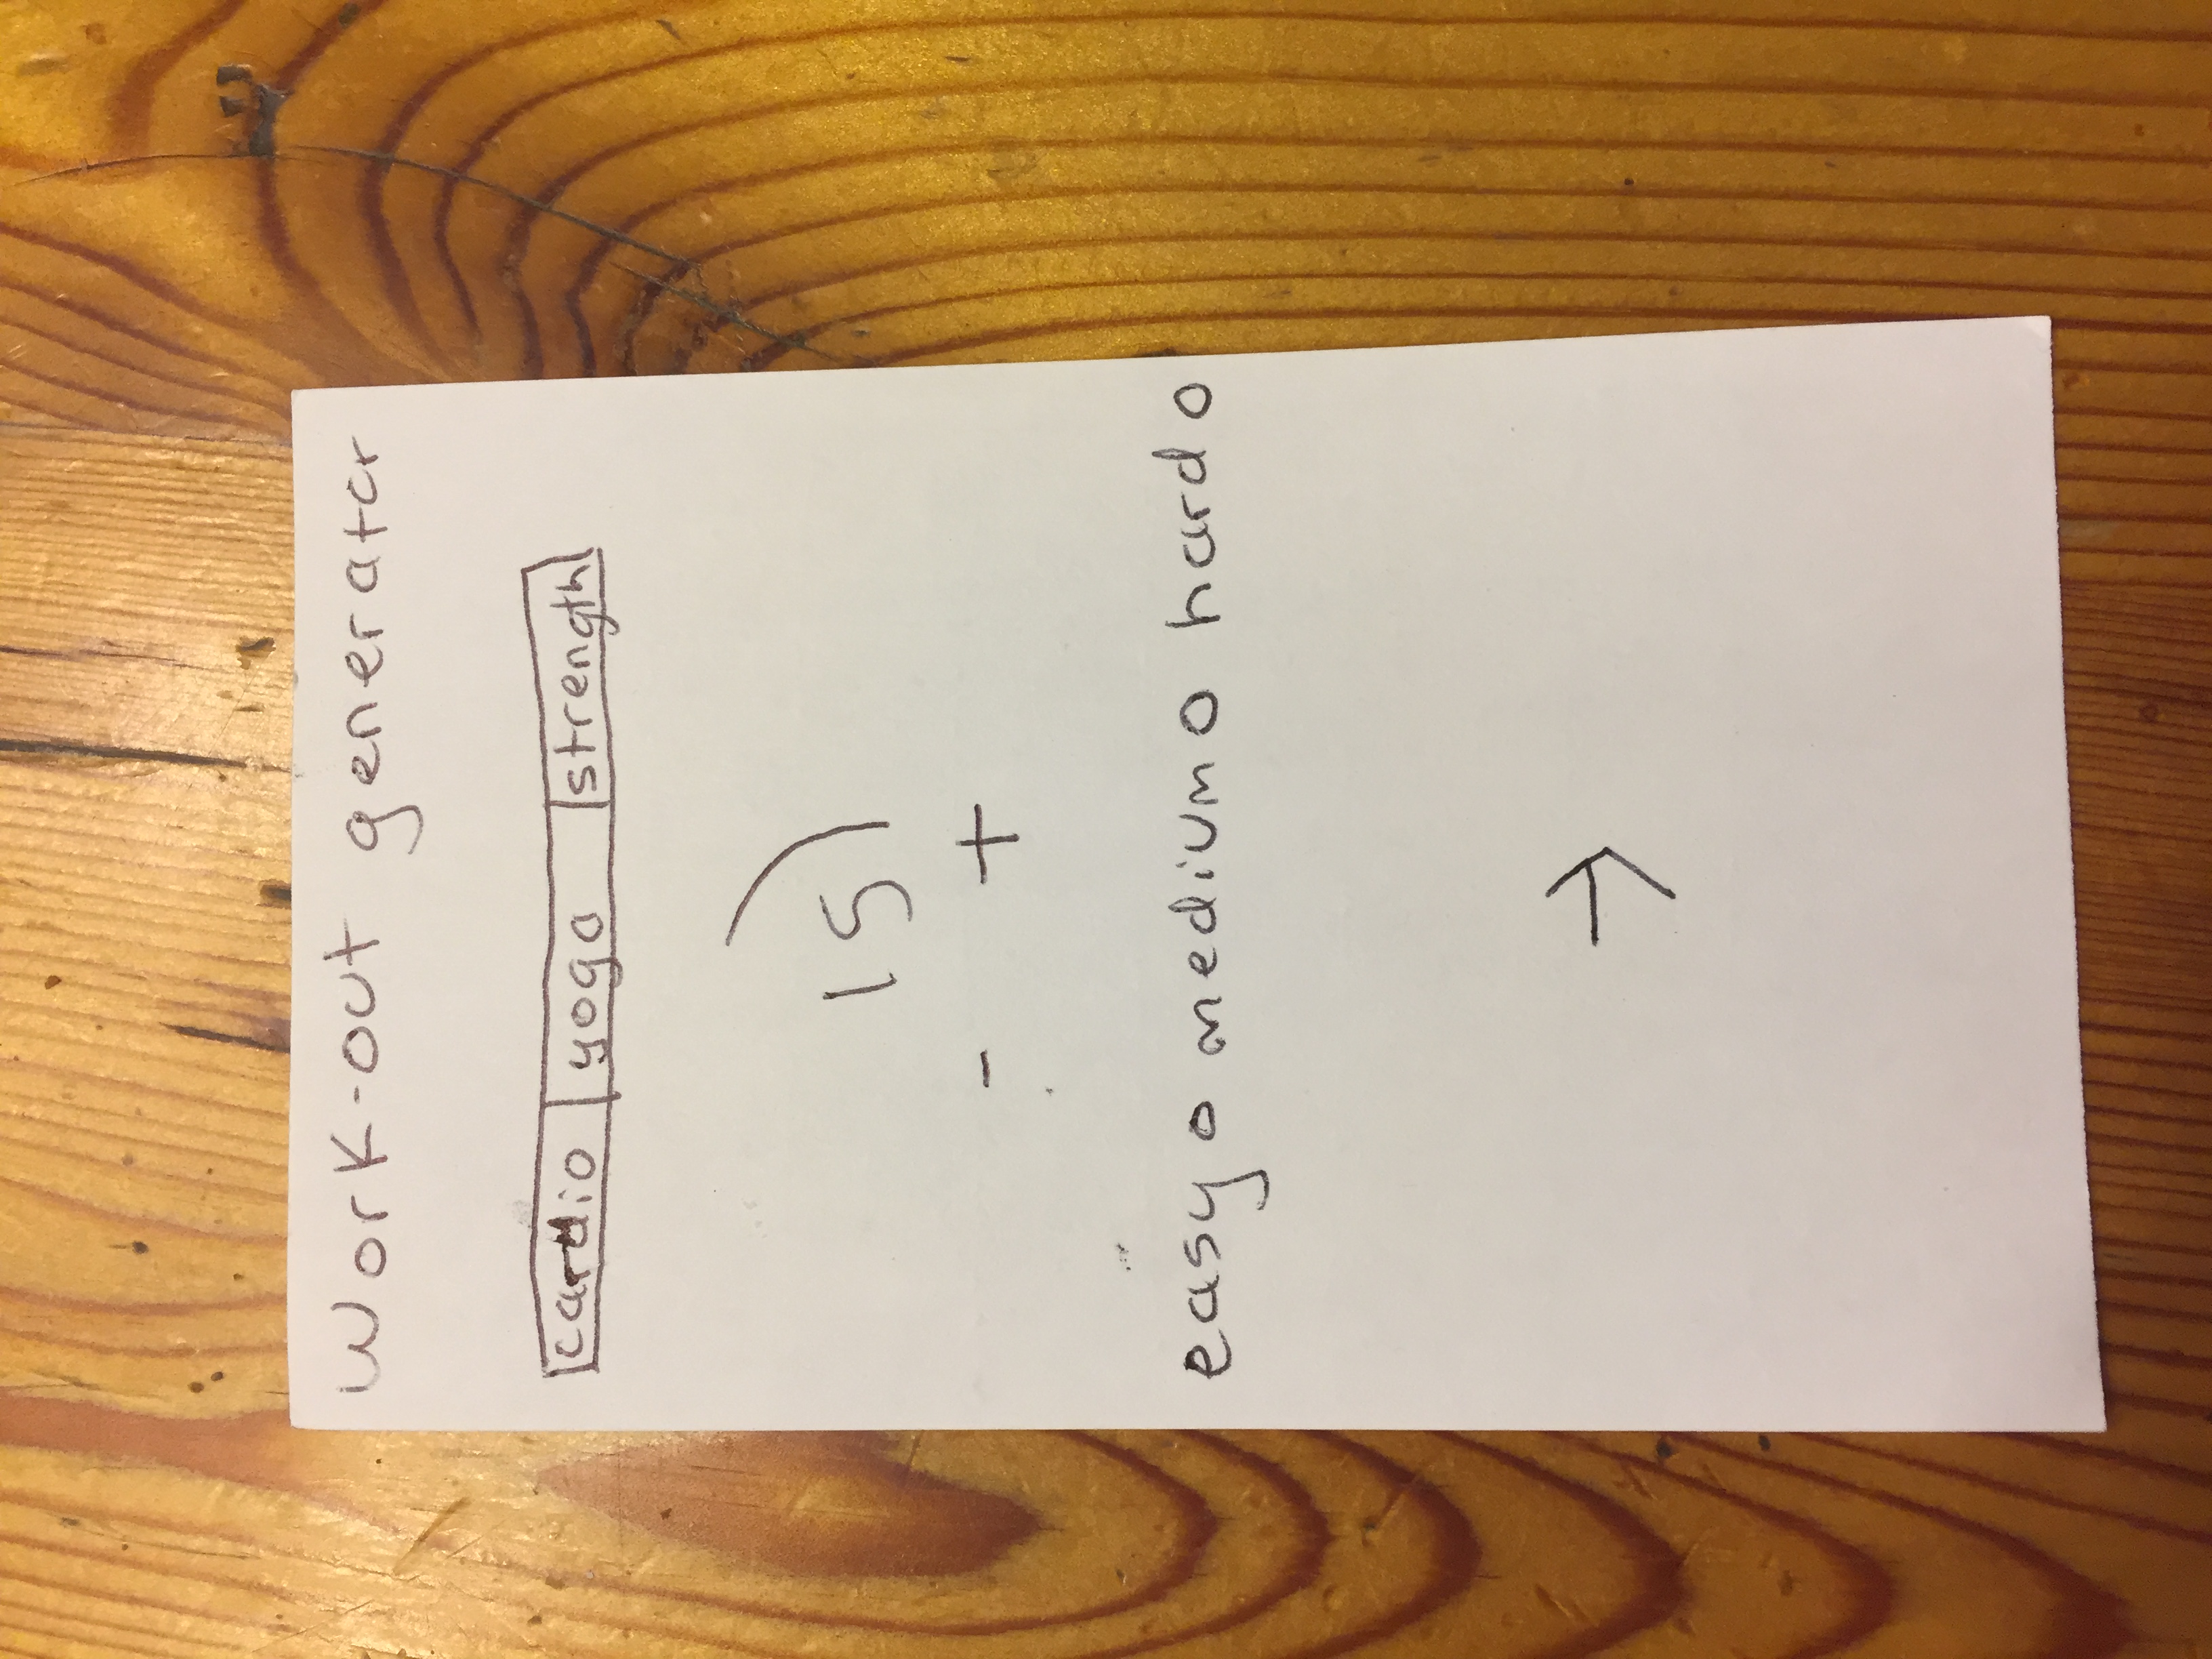 Work-out generator
cardio yoga strength
15
- +
easy o medium o hard o
→